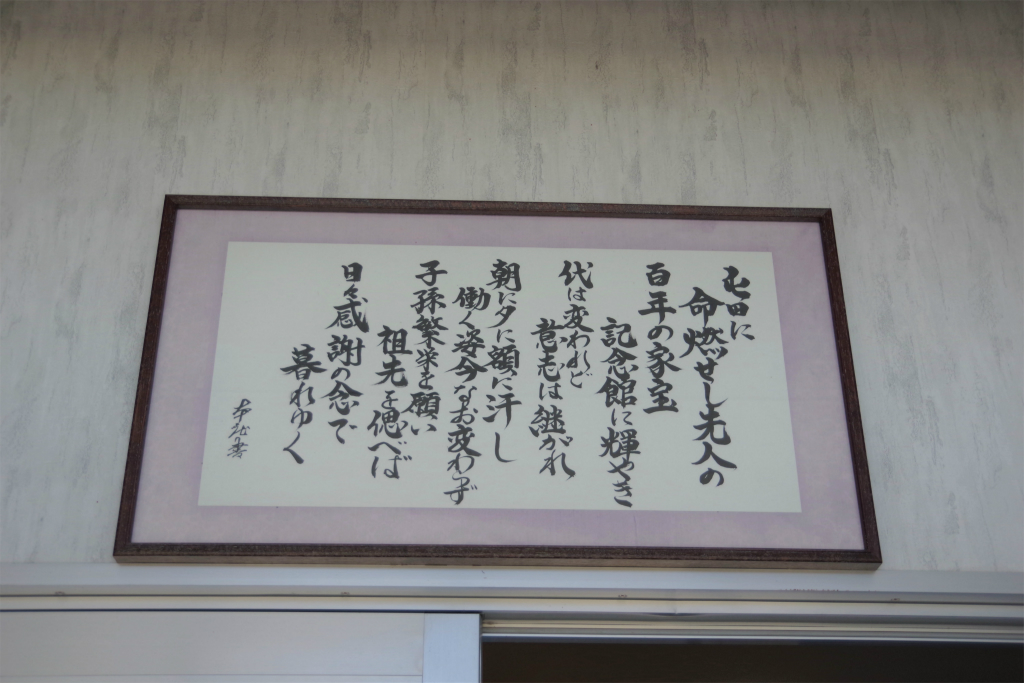 屯田に
命燃せし先人の
百年の家宝
記念館に輝やき
代は変われど
意志は継がれ
朝に夕に額に汗し
働く姿今なお変わらず
子孫繁栄を願い
祖先を偲べば
日々感謝の念で
暮れゆく
書